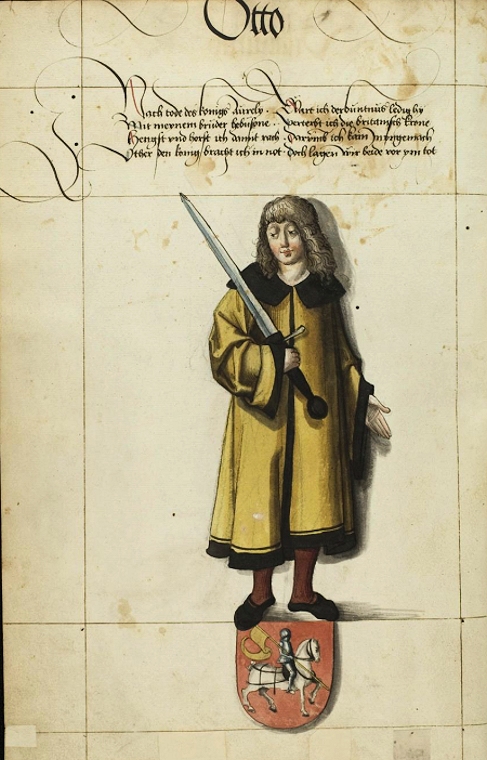 Otto
Nach tode des konigs Aurely · Wart ich der ledig by
Mit meynem bruder hebussone · Verterbt ich die britanisch krone
Hengst vnd horst ich damit rach · Darumb ich kam Jn vngemach
Uther den konig bracht ich in not · Doch lagen wir beide vor ym tot